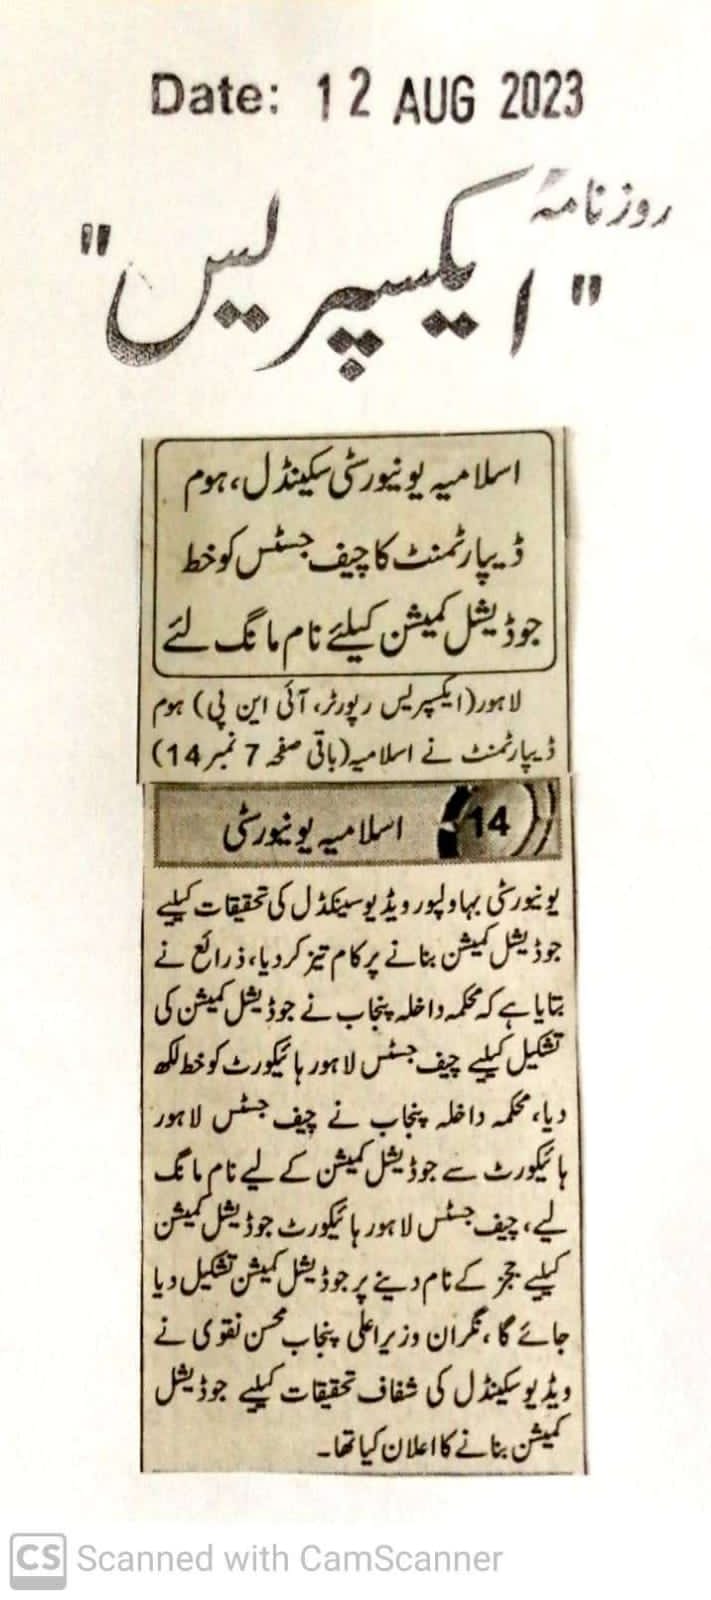 Date: 12 AUG 2023
روزنامہ
"ایکسپریس"
اسلامیہ یونیورسٹی سکینڈل، ہوم
ڈیپارٹمنٹ کا چیف جسٹس کو خط
جوڈیشل کمیشن کیلئے نام مانگ لئے
لاہور (ایکسپریس رپورٹر، آئی این پی) ہوم
ڈیپارٹمنٹ نے اسلامیہ (باقی صفحہ 7 نمبر 14)
14 اسلامیہ یونیورسٹی
یونیورسٹی بہاولپور ویڈیو سینکڈل کی تحقیقات کیلیے
جوڈیشل کمیشن بنانے پر کام تیز کر دیا، ذرائع نے
بتایا ہے کہ محکمہ داخلہ پنجاب نے جوڈیشل کمیشن کی
تشکیل کیلیے چیف جسٹس لاہور ہائیکورٹ کو خط لکھ
دیا، محکمہ داخلہ پنجاب نے چیف جسٹس لاہور
ہائیکورٹ سے جوڈیشل کمیشن کے لیے نام مانگ
لیے، چیف جسٹس لاہور ہائیکورٹ جوڈیشل کمیشن
کیلیے ججز کے نام دینے پر جوڈیشل کمیشن تشکیل دیا
جائے گا، نگران وزیراعلی پنجاب محسن نقوی نے
ویڈیو سکینڈل کی شفاف تحقیقات کیلیے جوڈیشل
کمیشن بنانے کا اعلان کیا تھا۔
CS Scanned with CamScanner